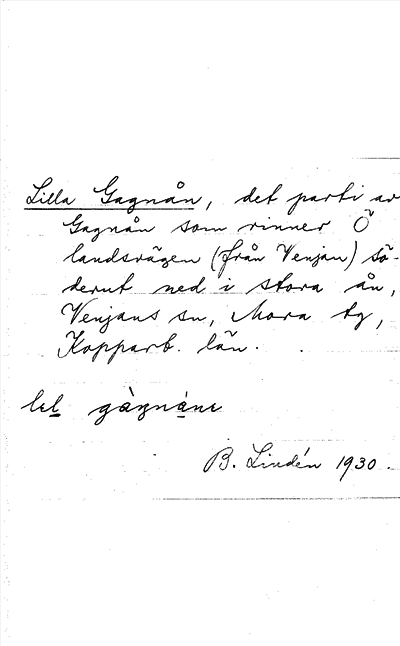 Lilla Gagnån, det parti av
Gagnån som rinner Ö
landsvägen (från Venjan) sö-
derut ned i stora ån,
Venjans sn, Mora tg,
Kopparb. län.
lɛl gàgnáne
B. Lindén 1930.